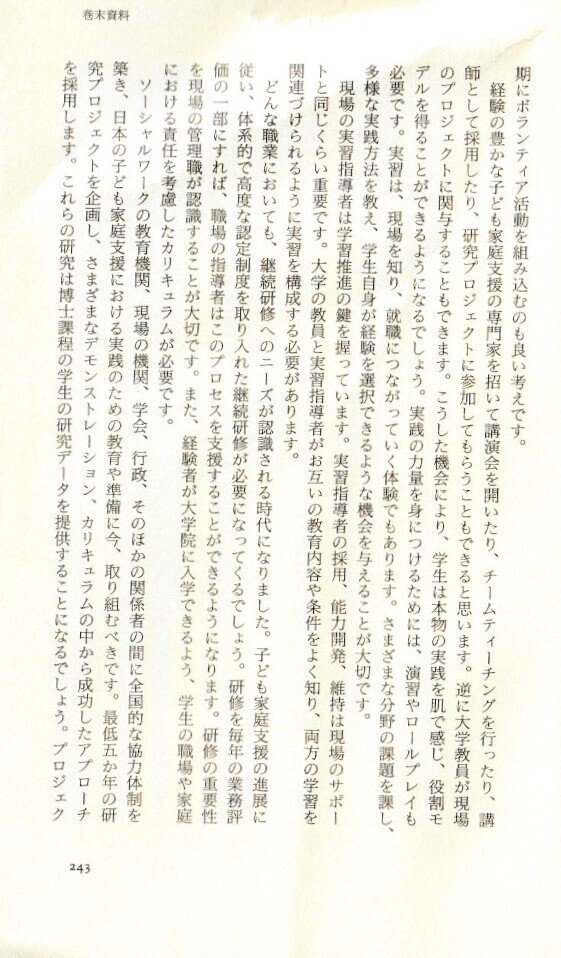 巻末資料
期にボランティア活動を組み込むのも良い考えです。
経験の豊かな子ども家庭支援の専門家を招いて講演会を開いたり、チームティーチングを行ったり、講
師として採用したり、研究プロジェクトに参加してもらうこともできると思います。逆に大学教員が現場
のプロジェクトに関与することもできます。こうした機会により、学生は本物の実践を肌で感じ、役割モ
デルを得ることができるようになるでしょう。実践の力量を身につけるためには、演習やロールプレイも
必要です。実習は、現場を知り、就職につながっていく体験でもあります。さまざまな分野の課題を課し、
多様な実践方法を教え、学生自身が経験を選択できるような機会を与えることが大切です。
現場の実習指導者は学習推進の鍵を握っています。実習指導者の採用、能力開発、維持は現場のサポー
トと同じくらい重要です。大学の教員と実習指導者がお互いの教育内容や条件をよく知り、両方の学習を
関連づけられるように実習を構成する必要があります。
どんな職業においても、継続研修へのニーズが認識される時代になりました。子ども家庭支援の進展に
従い、体系的で高度な認定制度を取り入れた継続研修が必要になってくるでしょう。研修を毎年の業務評
価の一部にすれば、職場の指導者はこのプロセスを支援することができるようになります。研修の重要性
を現場の管理職が認識することが大切です。また、経験者が大学院に入学できるよう、学生の職場や家庭
における責任を考慮したカリキュラムが必要です。
ソーシャルワークの教育機関、現場の機関、学会、行政、そのほかの関係者の間に全国的な協力体制を
築き、日本の子ども家庭支援における実践のための教育や準備に今、取り組むべきです。最低五か年の研
究プロジェクトを企画し、さまざまなデモンストレーション、カリキュラムの中から成功したアプローチ
を採用します。これらの研究は博士課程の学生の研究データを提供することになるでしょう。プロジェク
243